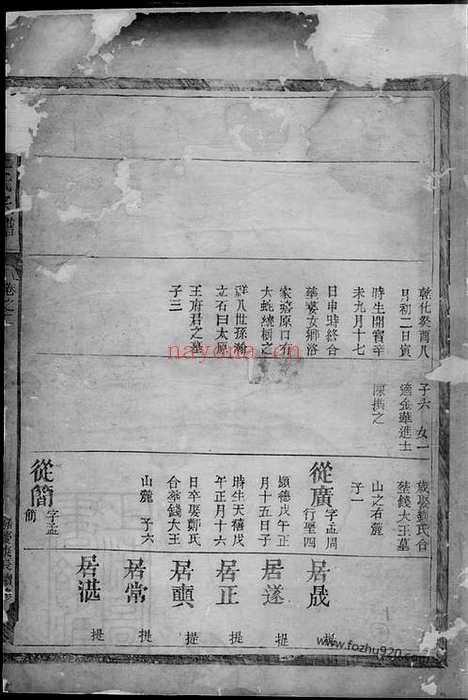 乾化癸酉八
月初二日寅
時生開寶辛
未九月十七
日申時終合
葬婺女鄉洛
家塢原口有
大蛇繞樹之
八世孫翰
立石曰太原
王府君之墓
子三
子六 女一
適金華進士
陳 之
歲娶 氏合
葬錢大王墓
山之右麓
子一
從廣 字孟周
行聖四
顯德戊午正
月十五日子
時生天禧戊
午正月十六
日卒娶鄭氏
合葬錢大王
山麓 子六
從簡 字孟
簡
居晟 提
居遂 提
居正 提
居奭 提
居常 提
居湛 提
氏宗譜
卷之
nayona.cn
www.fozhu920.com